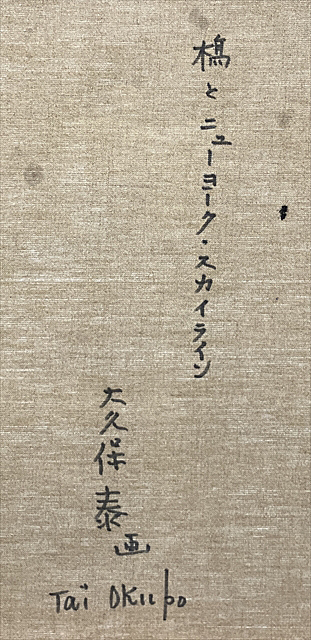 橋とニューヨーク・スカイライン
大久保泰画
Tai OKubo